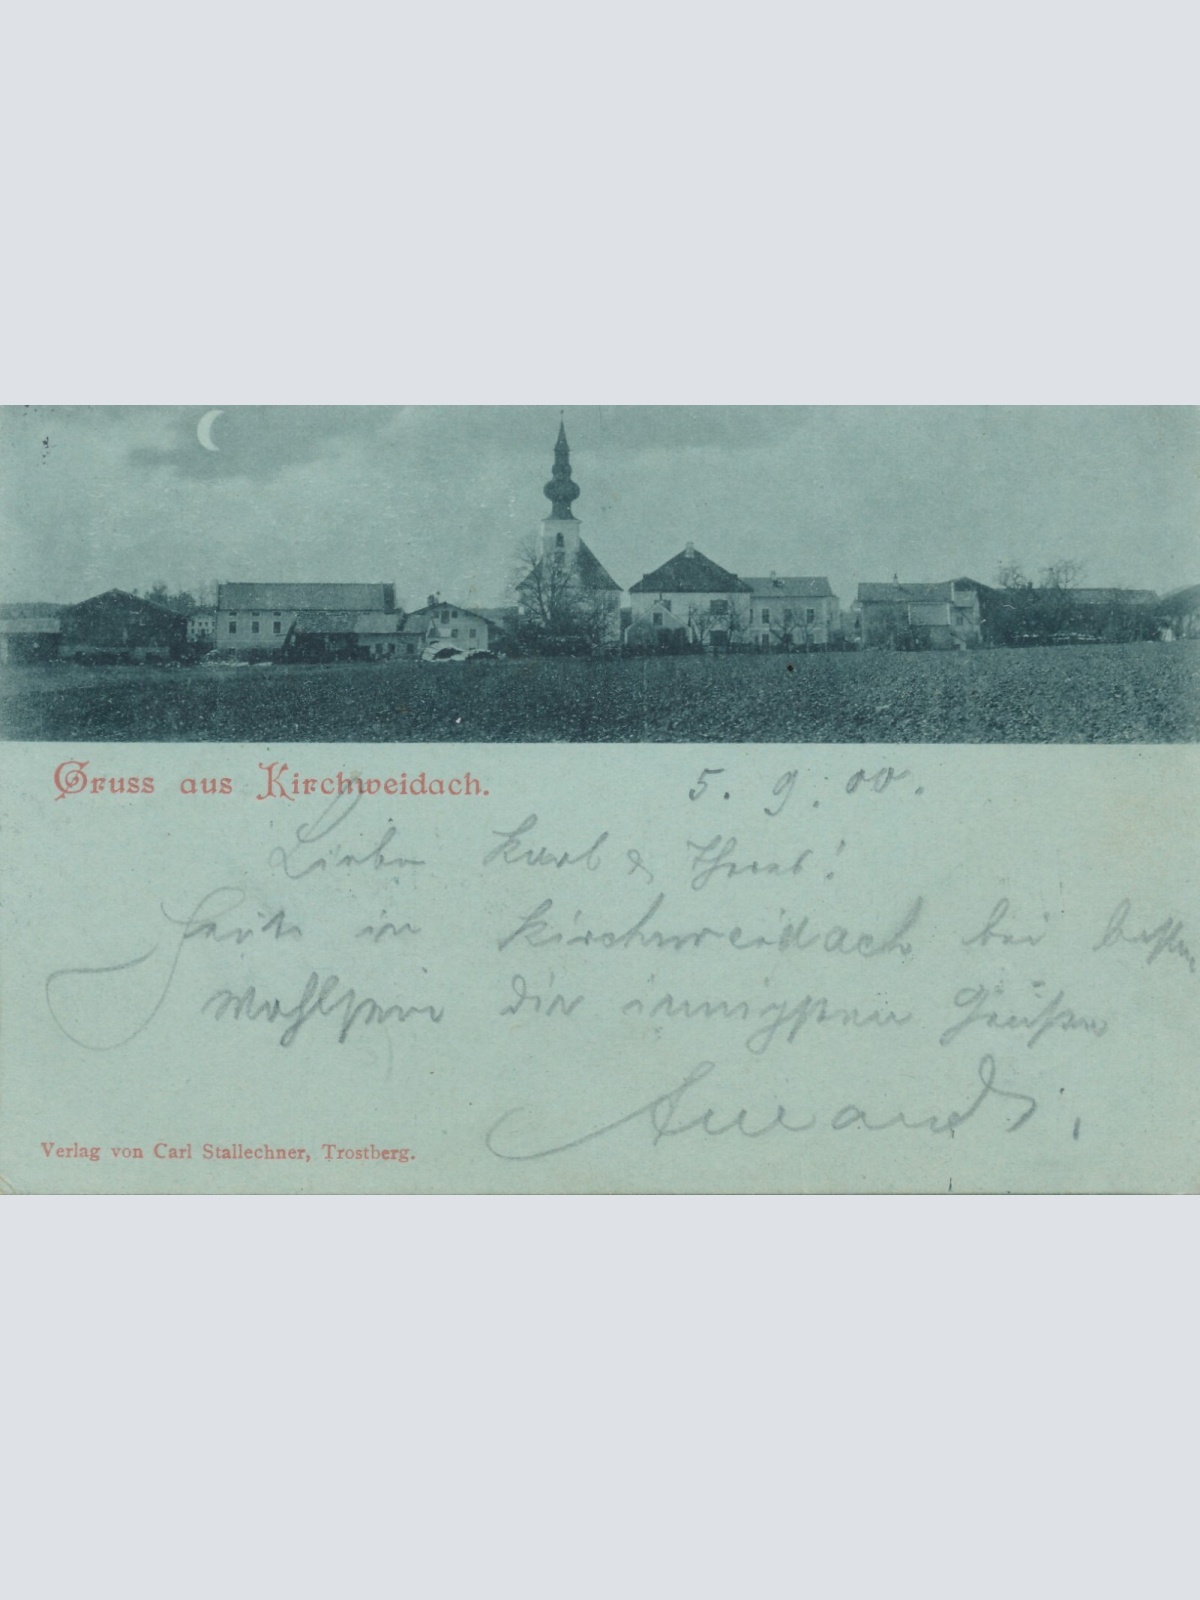 Gruss aus Kirchweidach.
5. 9. 00.
Liebe Karl & Theres!
Heute in Kirchweidach bei besten
Wohlsein die innigsten Grüße
Verlag von Carl Stallechner, Trostberg.